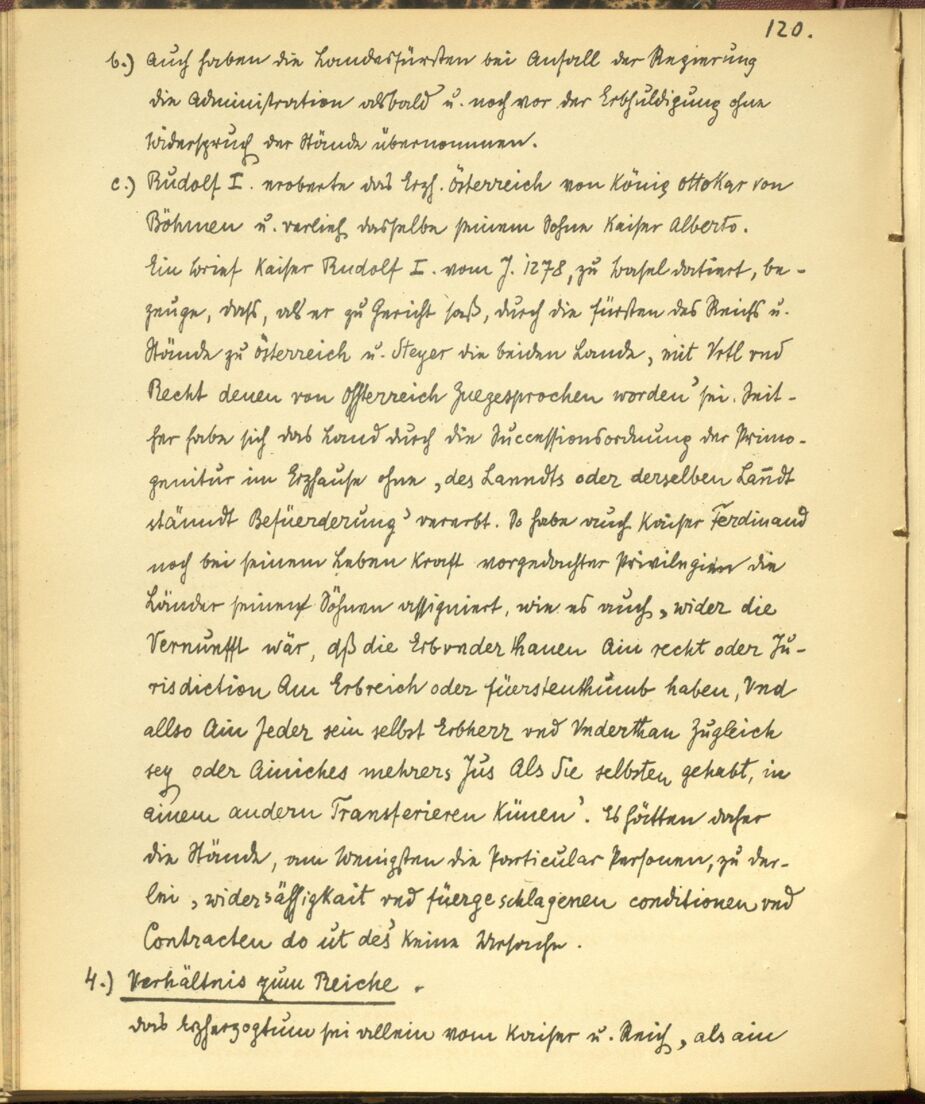 120.
b.) Auch haben die Landesfürsten bei Anfall der Regierung
die Administration alsbald u. noch vor der Erbhuldigung ohne
Widerspruch der Stände übernommen.
c.) Rudolf I. eroberte das Erzh. Österreich von König Ottokar von
Böhmen u. verlieh dasselbe seinem Sohne Kaiser Alberto.
Ein Brief Kaiser Rudolf I. vom J. 1278, zu Basel datiert, be-
zeuge, daß, als er zu Gericht saß, durch die Fürsten des Reichs u.
Stände zu Österreich u. Steyer die beiden Lande, mit Vrtl vnd
Recht denen von Össterreich Zuegesprochen worden' sei. Seit-
her habe sich das Land durch die Successionsordnung der Primo-
genitur im Erzhause ohne ,des Lanndts oder derselben Lanndt
stänndt Befüerderung' vererbt. So habe auch Kaiser Ferdinand
noch bei seinem Leben Kraft vorgedachter Privilegien die
Länder seinen Söhnen assigniert, wie es auch ,wider die
Vernunfft wär, dß die Erbvnderthanen Ain recht oder Ju-
risdiction Am Erbreich oder füerstenthumb haben, Vnd
allso Ain Jeder sein selbst Erbherr vnd Vnderthan Zugleich
sey oder Ainiches mehrers Jus Als Sie selbsten gehabt, in
ainem andern Transferieren Künen'. Es hätten daher
die Stände, am wenigsten die Particular Personen, zu der-
lei ,widersässigkait vnd füergeschlagenen conditionen vnd
Contracten do ut des' keine Ursache.
4.) Verhältnis zum Reiche.
Das Erzherzogtum sei allein vom Kaiser u. Reich ,als ain